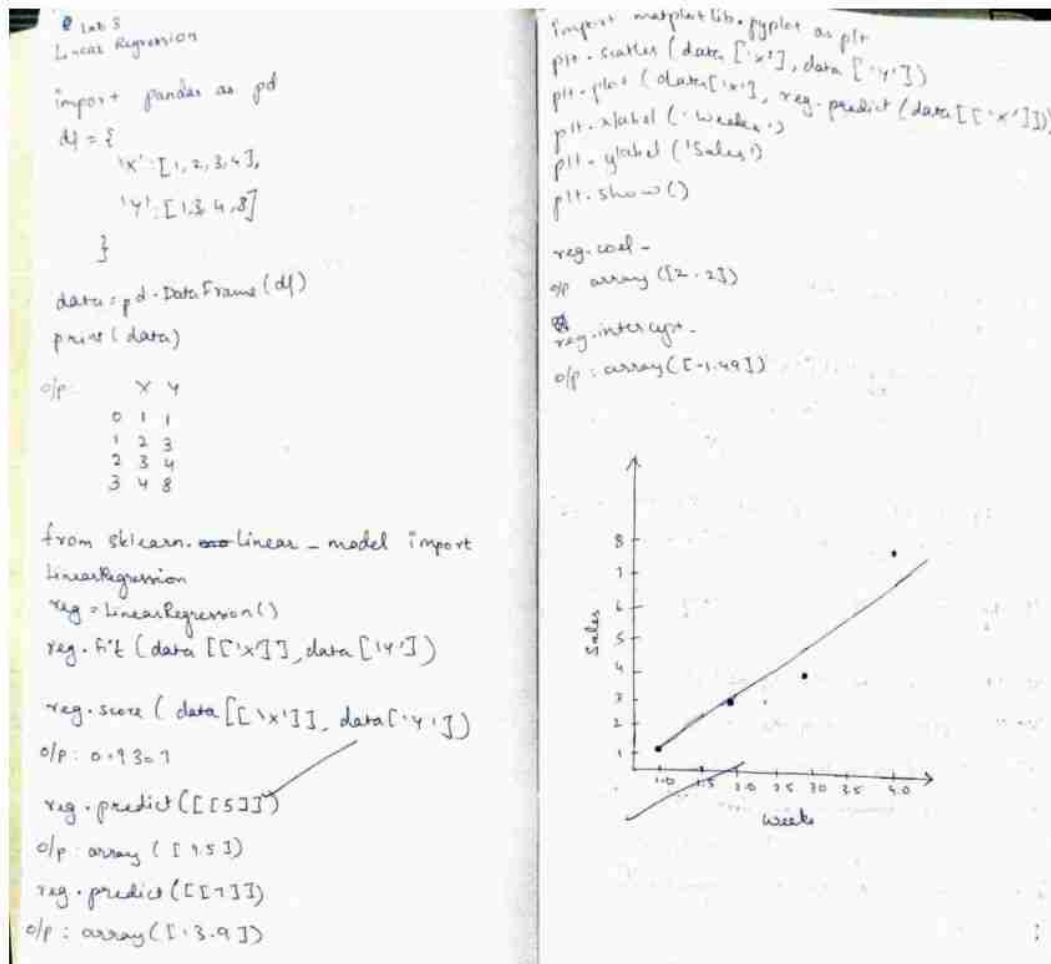 Lab 3
Linear Regression
import pandas as pd
df = {
'X' : [1, 2, 3, 4],
'Y' : [1,3, 4, 8]
}
data = pd.DataFrame(df)
print(data)
o/p: X Y
0 1 1
1 2 3
2 3 4
3 4 8
from sklearn.linear_model import
LinearRegression
reg = LinearRegression()
reg.fit (data [['X']], data ['Y'])
reg.score ( data [['X']], data['Y'])
o/p: 0.9307
reg.predict([[5]])
o/p: array ([9.5])
reg.predict([[7]])
o/p: array([13.9])
import matplotlib.pyplot as plt
plt.scatter (data['X'], data ['Y'])
plt.plot (data['X'], reg.predict (data[['X']])
plt.xlabel ('Weeks')
plt.ylabel ('Sales')
plt.show()
reg.coef_
o/p array ([2.2])
reg.intercept_
o/p: array([-1.49])
8
7
6
5
4
3
2
1
Sales
1.0 1.5 2.0 2.5 3.0 3.5 4.0
Weeks